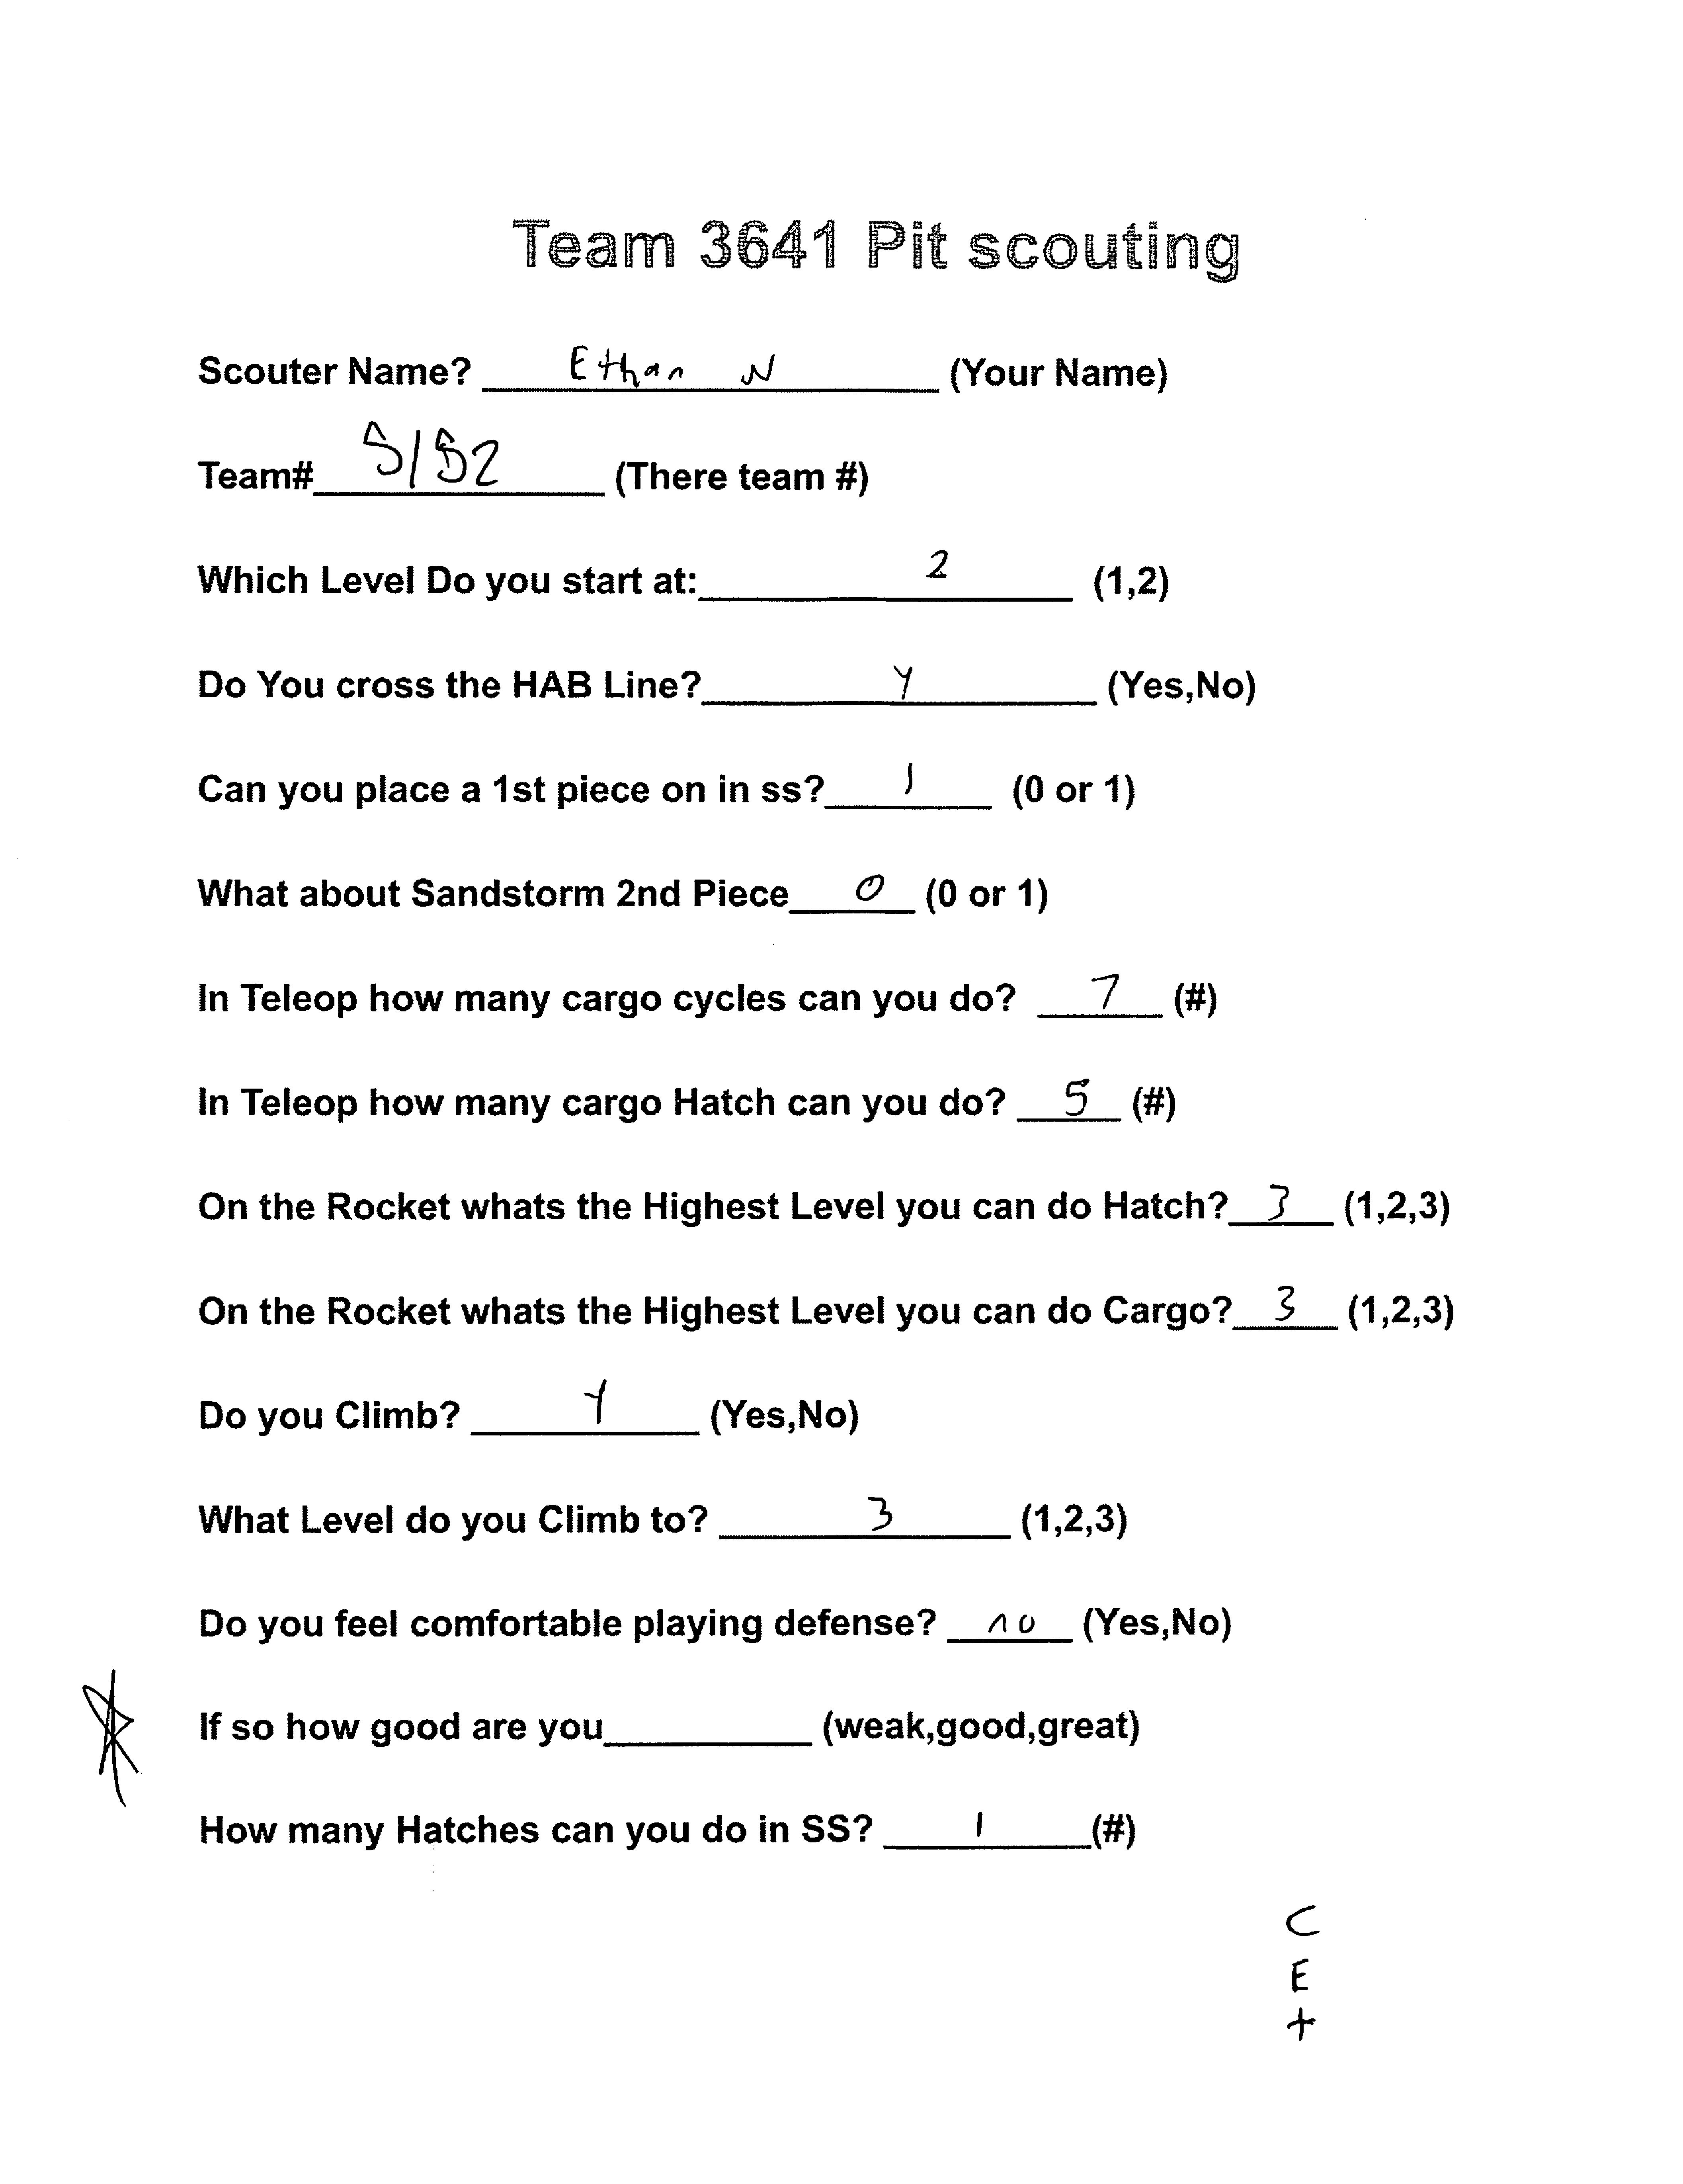 Team 3641 Pit scouting
Scouter Name? Ethan N (Your Name)
Team# 5152 (There team #)
Which Level Do you start at: 2 (1,2)
Do You cross the HAB Line? Y (Yes,No)
Can you place a 1st piece on in ss? 1 (0 or 1)
What about Sandstorm 2nd Piece 0 (0 or 1)
In Teleop how many cargo cycles can you do? 7 (#)
In Teleop how many cargo Hatch can you do? 5 (#)
On the Rocket whats the Highest Level you can do Hatch? 3 (1,2,3)
On the Rocket whats the Highest Level you can do Cargo? 3 (1,2,3)
Do you Climb? Y (Yes,No)
What Level do you Climb to? 3 (1,2,3)
Do you feel comfortable playing defense? no (Yes,No)
If so how good are you (weak,good,great)
How many Hatches can you do in SS? 1 (#)
C
E
+